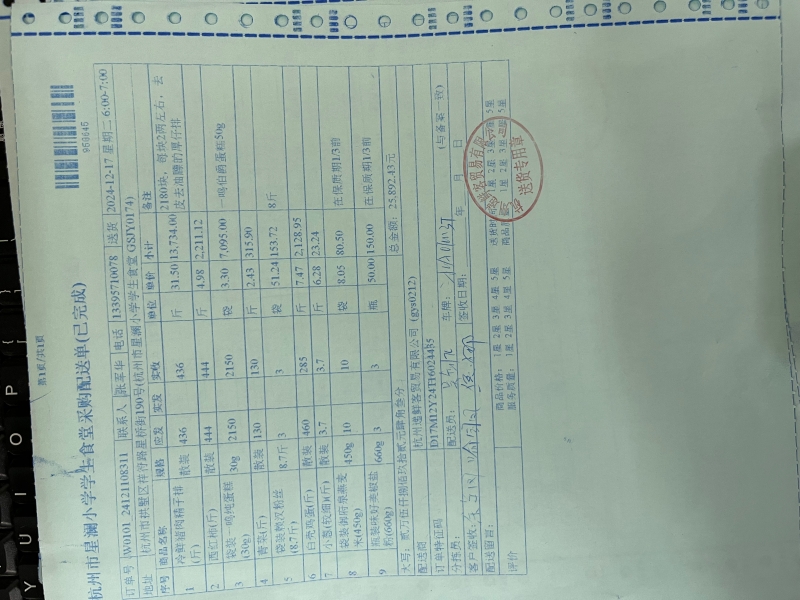 第1页/共1页
956645
杭州市星澜小学学生食堂采购配送单(已完成)
订单号 W0101_24121108311 联系人 张军华 电话 13395710078 送货 2024-12-17 星期二 6:00-7:00
地址 杭州市拱墅区祥符路星桥街190号(杭州市星澜小学学生食堂 GSJY0174)
序号 商品名称 规格 应发 实发 实收 单位 单价 小计 备注
1 冷鲜猪肉精干排(斤) 散装 436 436 斤 31.50 13,734.00 2180块,每块2两左右,去皮去油膘的厚仔排
2 西红柿(斤) 散装 444 444 斤 4.98 2,211.12
3 袋装一鸣纯蛋糕(30g) 30g 2150 2150 袋 3.30 7,095.00 一鸣伯爵蛋糕50g
4 青菜(斤) 散装 130 130 斤 2.43 315.90
5 袋装 粉丝(8.7斤) 8.7斤 3 3 袋 51.24 153.72 8斤
6 白壳鸡蛋(斤) 散装 460 285 斤 7.47 2,128.95
7 小葱(较细)(斤) 散装 3.7 3.7 斤 6.28 23.24
8 袋装 燕麦米(450g) 450g 10 10 袋 8.05 80.50 在保质期1/3前
9 瓶装味好美椒盐 (660g) 660g 3 3 瓶 50.00 150.00 在保质期1/3前
大写:贰万伍仟捌佰玖拾贰元肆角叁分 总金额: 25,892.43元
配送商 杭州 鲜客贸易有限公司 (gys0212)
订单特征码 (与备案一致)
分拣员: 配送员: 车牌:
客户签收: 签收日期: 年 月 日
配送留言:
评价 商品价格: 1星 2星 3星 4星 5星 送货时
服务质量: 1星 2星 3星 4星 5星 商品质
1星 2星 3星 4星 5星
1星 2星 3星 4星 5星
客贸易有限
送货专用章